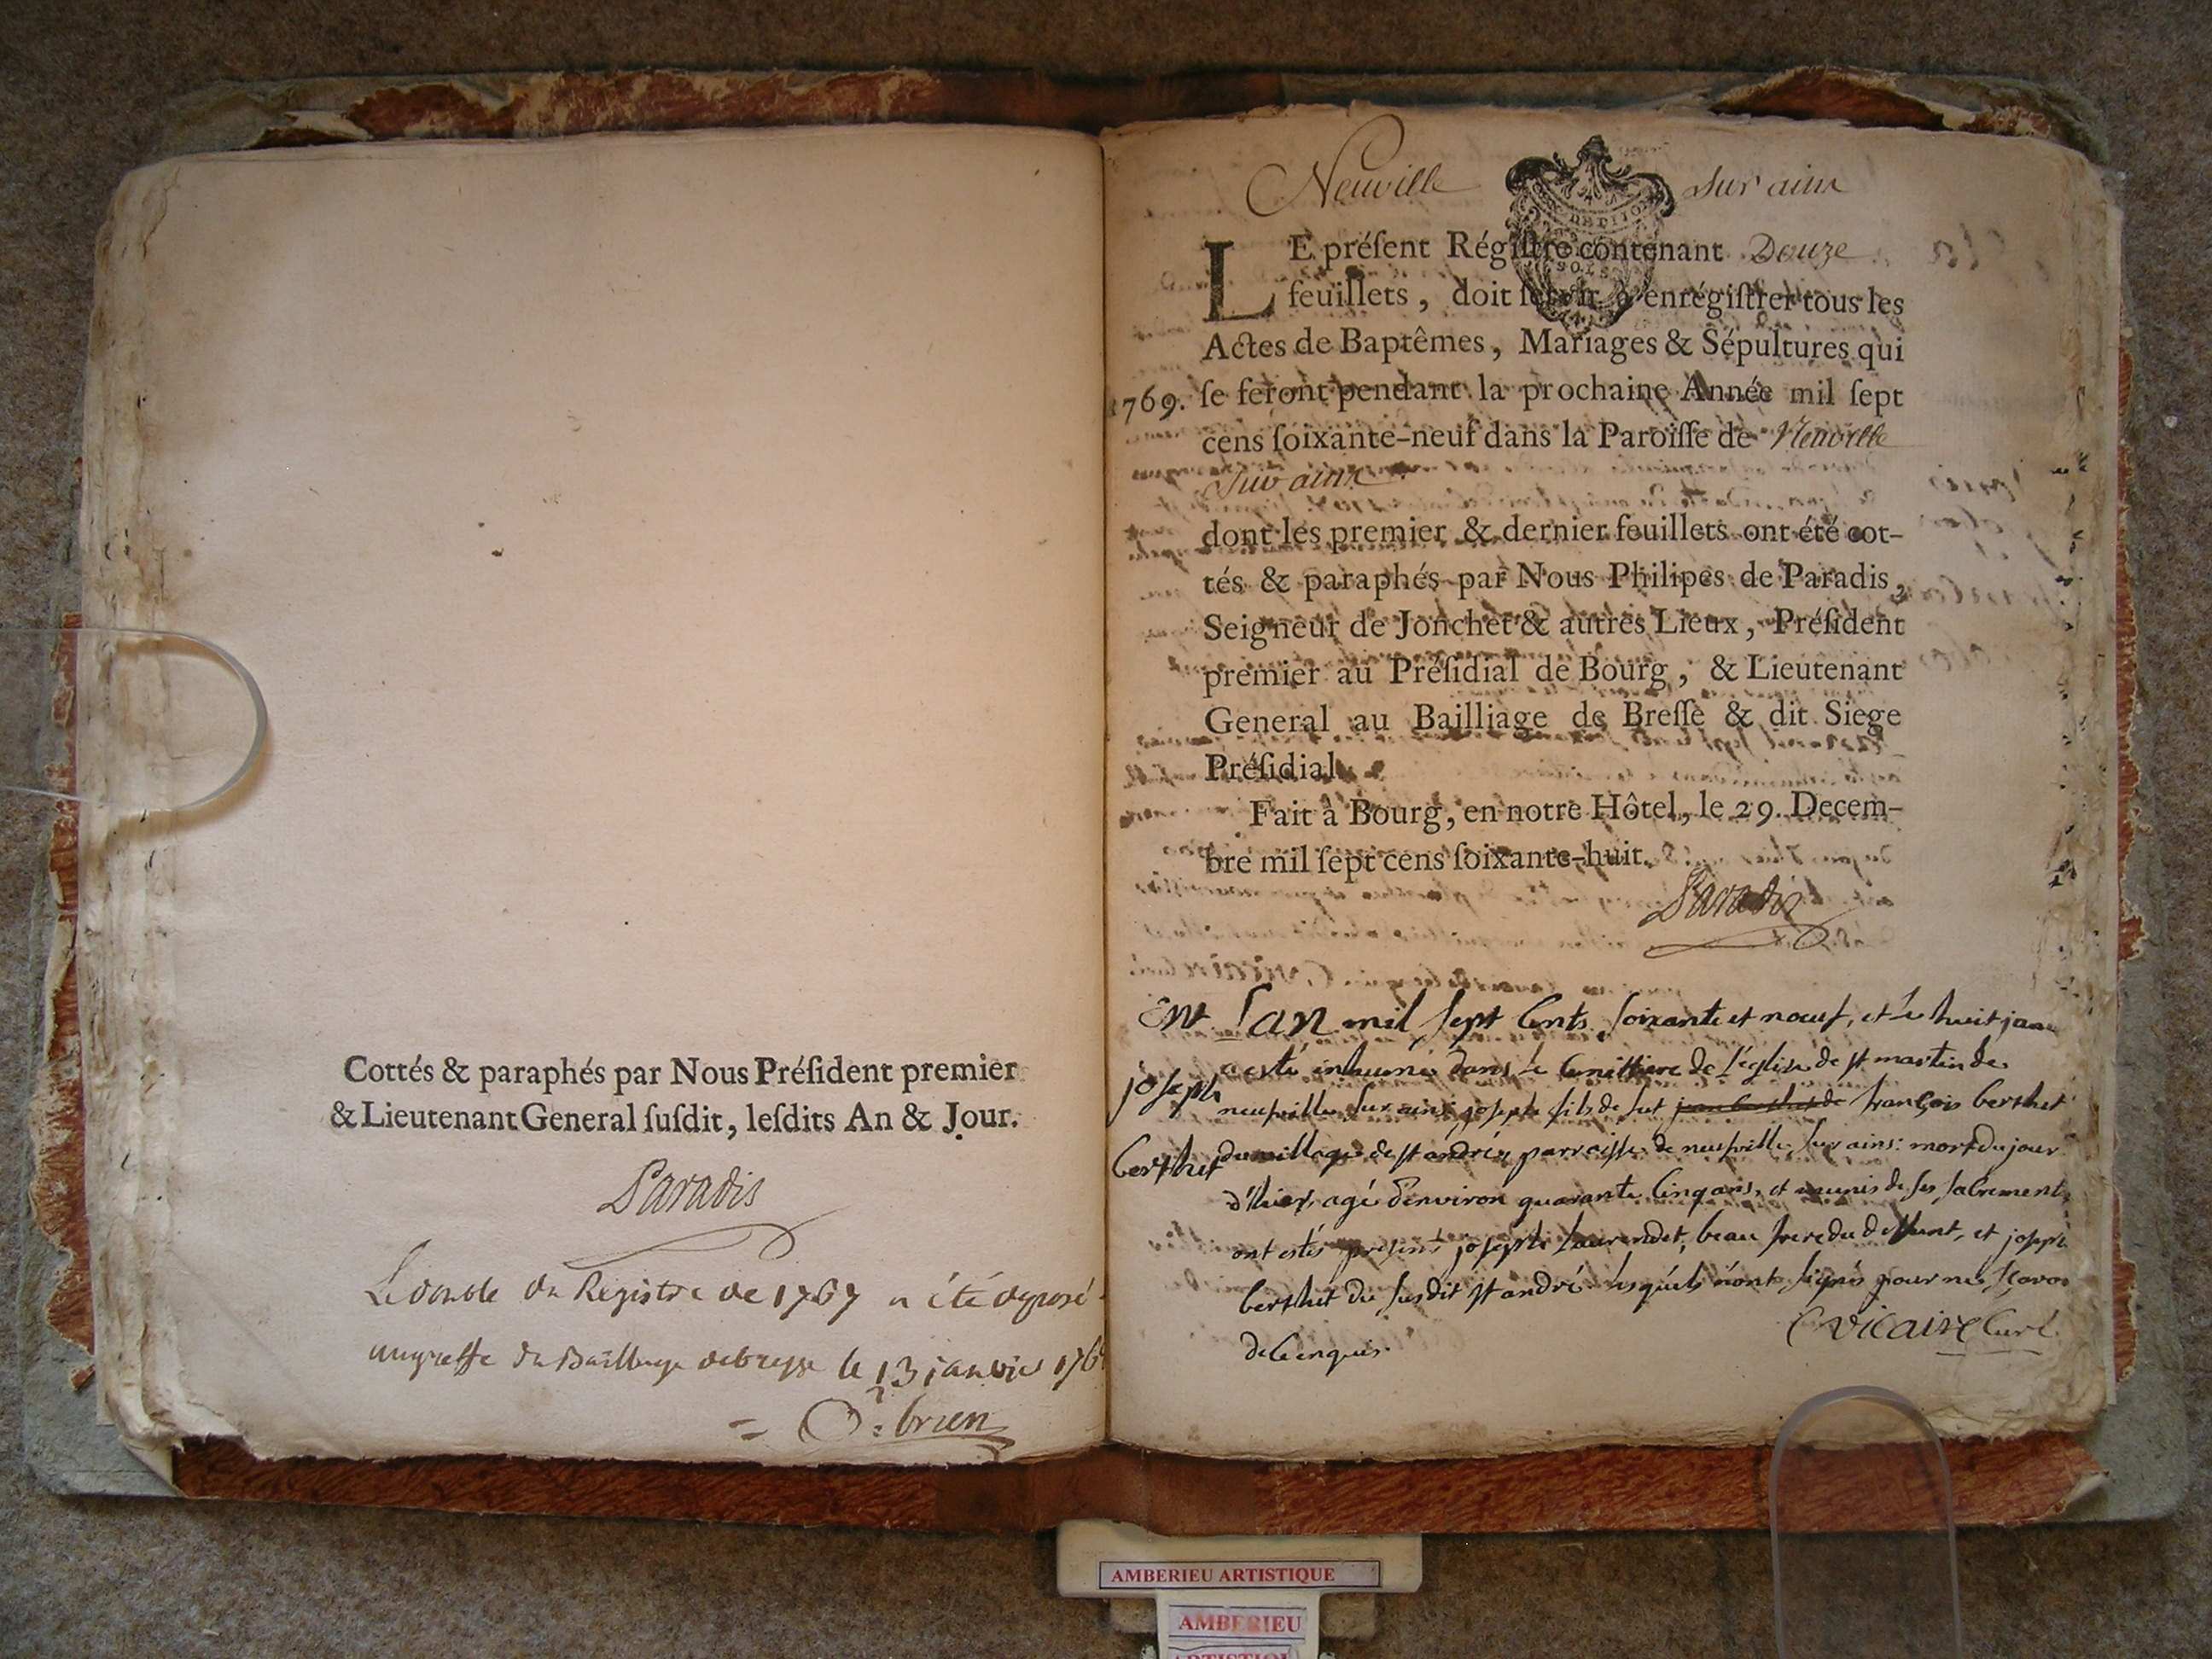 Cottés & paraphés par Nous Préſident premier
& Lieutenant General ſuſdit, leſdits An & Jour.
Paradis
Le double du Registre de 1767 a été déposé
au greffe du Bailliage de bresse le 13 janvier 176
O'brien
Neuville sur ain
LE préſent Régiſtre contenant Douze
feuillets, doit ſervir à enrégiſtrer tous les
Actes de Baptêmes, Mariages & Sépultures qui
1769. ſe feront pendant la prochaine Année mil ſept
cens ſoixante-neuf dans la Paroiſſe de Neuville
sur ain
dont les premier & dernier feuillets ont été cot-
tés & paraphés par Nous Philipes de Paradis,
Seigneur de Jonchet & autres Lieux, Préſident
premier au Préſidial de Bourg, & Lieutenant
General au Bailliage de Breſſe & dit Siege
Préſidial.
Fait à Bourg, en notre Hôtel, le 29. Decem-
bre mil ſept cens ſoixante-huit.
Paradis
En L'an mil sept cents soixante et nœuf, et le huit janv
joseph
berthet
a esté inhumé dans le cemittiere de l'église de st martin de
neufville sur ains joseph fils de fut jean berthet de françois berthet
du village de st andré parroisse de neufville sur ains: mort du jour
d'hier agé d'environ quarante cinq ans, et munis de ses sacrements
ont estés presents joseph laurendet, beau frere du deffunt, et joseph
berthet du susdit st andré lesquels n'ont signés pour ne scavoi
de ce enquis.
C vicaire Curé
AMBERIEU ARTISTIQUE
AMBERIEU
ARTISTIQUE